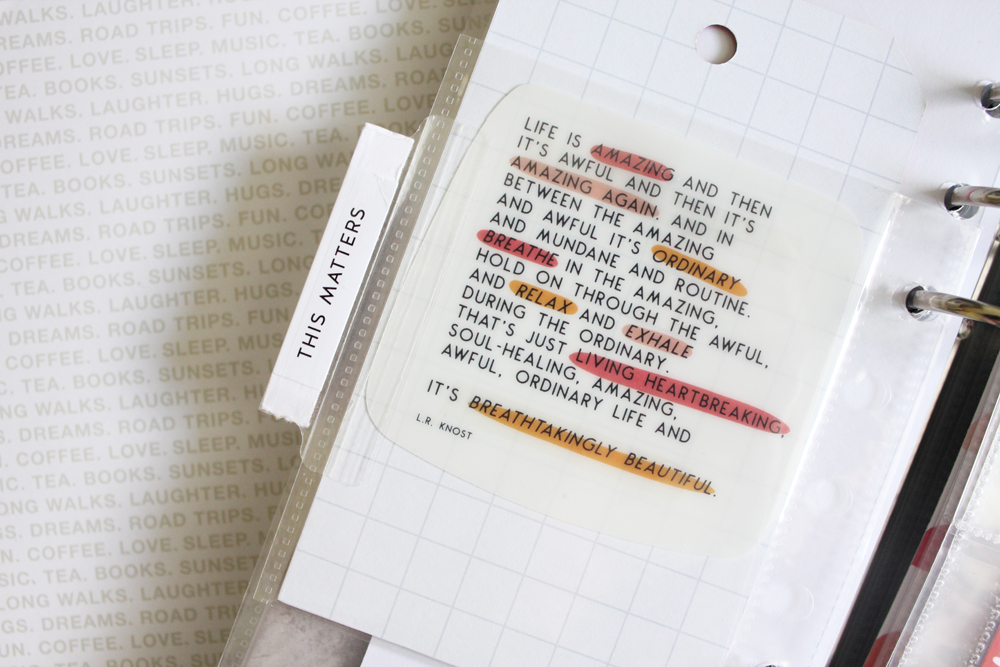 WALKS. LAUGHTER. HUGS. DREAMS.
DREAMS. ROAD TRIPS. FUN. COFFEE.
COFFEE. LOVE. SLEEP. MUSIC. TEA. BOOKS.
TEA. BOOKS. SUNSETS. LONG WALKS. LAUGHTER.
WALKS. LAUGHTER. HUGS. DREAMS. ROAD
DREAMS. ROAD TRIPS. FUN. COFFEE. LOVE.
COFFEE. LOVE. SLEEP. MUSIC. TEA. BOOKS.
TEA. BOOKS. SUNSETS. LONG WALKS.
WALKS. LAUGHTER. HUGS.
DREAMS. ROAD TRIPS. FUN.
COFFEE. LOVE. SLEEP. MUSIC.
TEA. BOOKS. SUNSETS.
LAUGHTER. HUGS.
ROAD TRIPS.
LOVE. SLEEP.
TEA. BOOKS. SUNSETS.
WALKS. LAUGHTER. HUGS.
DREAMS. ROAD TRIPS. FUN.
COFFEE. LOVE. SLEEP. MUSIC.
TEA. BOOKS. SUNSETS.
WALKS. LAUGHTER. HUGS.
DREAMS. ROAD TRIPS.
COFFEE. LOVE. SLEEP.
TEA. BOOKS. SUNSETS.
LONG WALKS. LAUGHTER.
DREAMS. ROAD
FUN. COFFEE. LOVE. SLEEP.
THIS MATTERS
LIFE IS AMAZING AND THEN
IT'S AWFUL AND THEN IT'S
AMAZING AGAIN. AND IN
BETWEEN THE AMAZING
AND AWFUL IT'S ORDINARY
AND MUNDANE AND ROUTINE.
BREATHE IN THE AMAZING,
HOLD ON THROUGH THE AWFUL,
AND RELAX AND EXHALE
DURING THE ORDINARY.
THAT'S JUST LIVING HEARTBREAKING,
SOUL-HEALING, AMAZING,
AWFUL, ORDINARY LIFE AND
IT'S BREATHTAKINGLY BEAUTIFUL.
L.R. KNOST